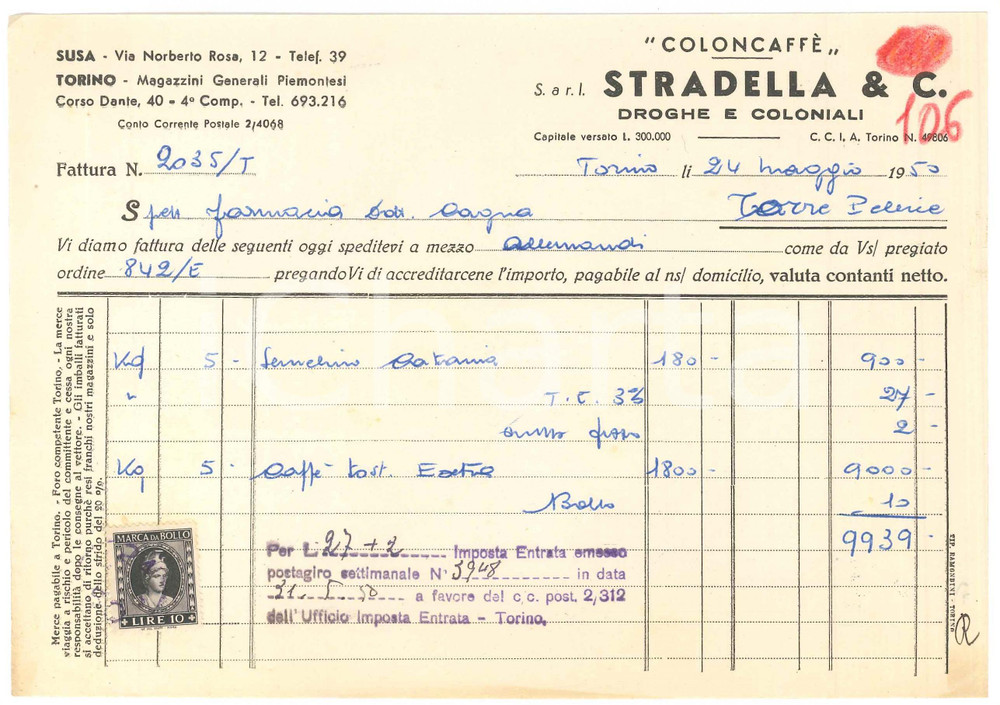 SUSA - Via Norberto Rosa, 12 - Telef. 39
TORINO - Magazzini Generali Piemontesi
Corso Dante, 40 - 4º Comp. - Tel. 693.216
Conto Corrente Postale 2/4068
"COLONCAFFÈ„
S. a r. l. STRADELLA & C.
DROGHE E COLONIALI
Capitale versato L. 300.000 C. C. I. A. Torino N. 49806
106
Fattura N. 2035/T Torino li 24 maggio 1950
Spett farmacia Dott. Cagna Torre Pellice
Vi diamo fattura delle seguenti oggi speditevi a mezzo Allemandi come da Vs/ pregiato
ordine 842/E pregandoVi di accreditarcene l'importo, pagabile al ns/ domicilio, valuta contanti netto.
Merce pagabile a Torino. - Foro competente Torino. - La merce
viaggia a rischio e pericolo del committente e cessa ogni nostra
responsabilità dopo le consegne al vettore. - Gli imballi fatturati
si accettano di ritorno purchè resi franchi nostri magazzini e solo
deduzione dello sfrido del 20 %.
Kg 5 - Catania 180 - 900 -
" T. E. 3% 27 -
2 -
Kg 5 - Caffè tost. Extra 1800 - 9000 -
Bollo 10
9939 -
MARCA DA BOLLO
LIRE 10
Per L. 27 + 2 Imposta Entrata emesso
postagiro settimanale N° 3948 in data
31-5-50 a favore del c.c. post. 2,312
dell'Ufficio Imposta Entrata - Torino.
TIP. RAMONDINI - TORINO
R